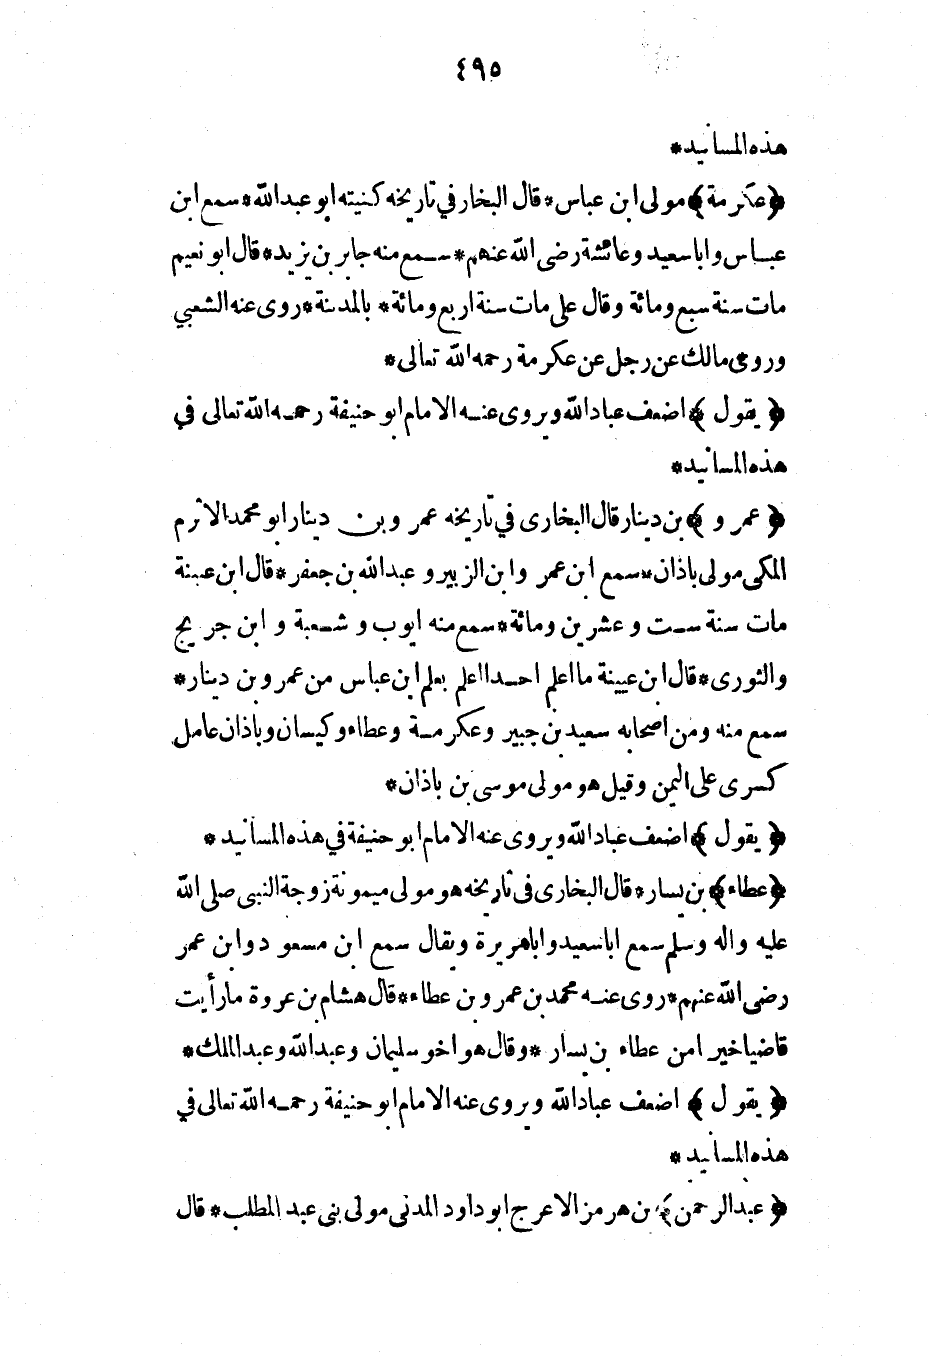 ٤٩٥
هذه المسانيد*
﴿عكرمة﴾ مولى ابن عباس* قال البخارفي تاريخه كنيته ابو عبدالله* سمع ابن
عباس واباسعيد وعائشة رضى الله عنهم* سمع منه جابر بن زيد* قال ابو نعيم
مات سنة سبع ومائة وقال على مات سنة اربع ومائة* بالمدينة* روى عنه الشعبي
وروى مالك عن رجل عن عكرمة رحمه الله تعالى*
﴿يقول﴾ اضعف عبادالله ويروى عنه الامام ابو حنيفة رحمه الله تعالى في
هذه المسانيد*
﴿عمرو﴾ بن دينار قال البخارى في تاريخه عمرو بن دينار ابو محمد الاثرم
المكى مولى باذان* سمع ابن عمر وابن الزبير و عبدالله بن جعفر* قال ابن عيينة
مات سنة ست و عشرين ومائة* سمع منه ايوب و شعبة و ابن جريج
والثورى* قال ابن عيينة ما اعلم احدا اعلم بعلم ابن عباس من عمرو بن دينار*
سمع منه ومن اصحابه سعيد بن جبير وعكرمة وعطاء وكيسان وباذان عامل
كسرى على اليمن وقيل هو مولى موسى بن باذان*
﴿يقول﴾ اضعف عبادالله ويروى عنه الامام ابو حنيفة في هذه المسانيد*
﴿عطاء﴾ بن يسار* قال البخارى فى تاريخه هو مولى ميمونة زوجة النبى صلى الله
عليه واله وسلم سمع اباسعيد واباهريرة ويقال سمع ابن مسعود وابن عمر
رضى الله عنهم* روى عنه محمد بن عمرو بن عطاء* قال هشام بن عروة مارأيت
قاضيا خيرا من عطاء بن يسار* وقال هو اخو سليمان وعبدالله وعبدالملك*
﴿يقول﴾ اضعف عبادالله ويروى عنه الامام ابو حنيفة رحمه الله تعالى في
هذه المسانيد*
﴿عبدالرحمن﴾ بن هرمز الاعرج ابوداود المدنى مولى بنى عبد المطلب* قال